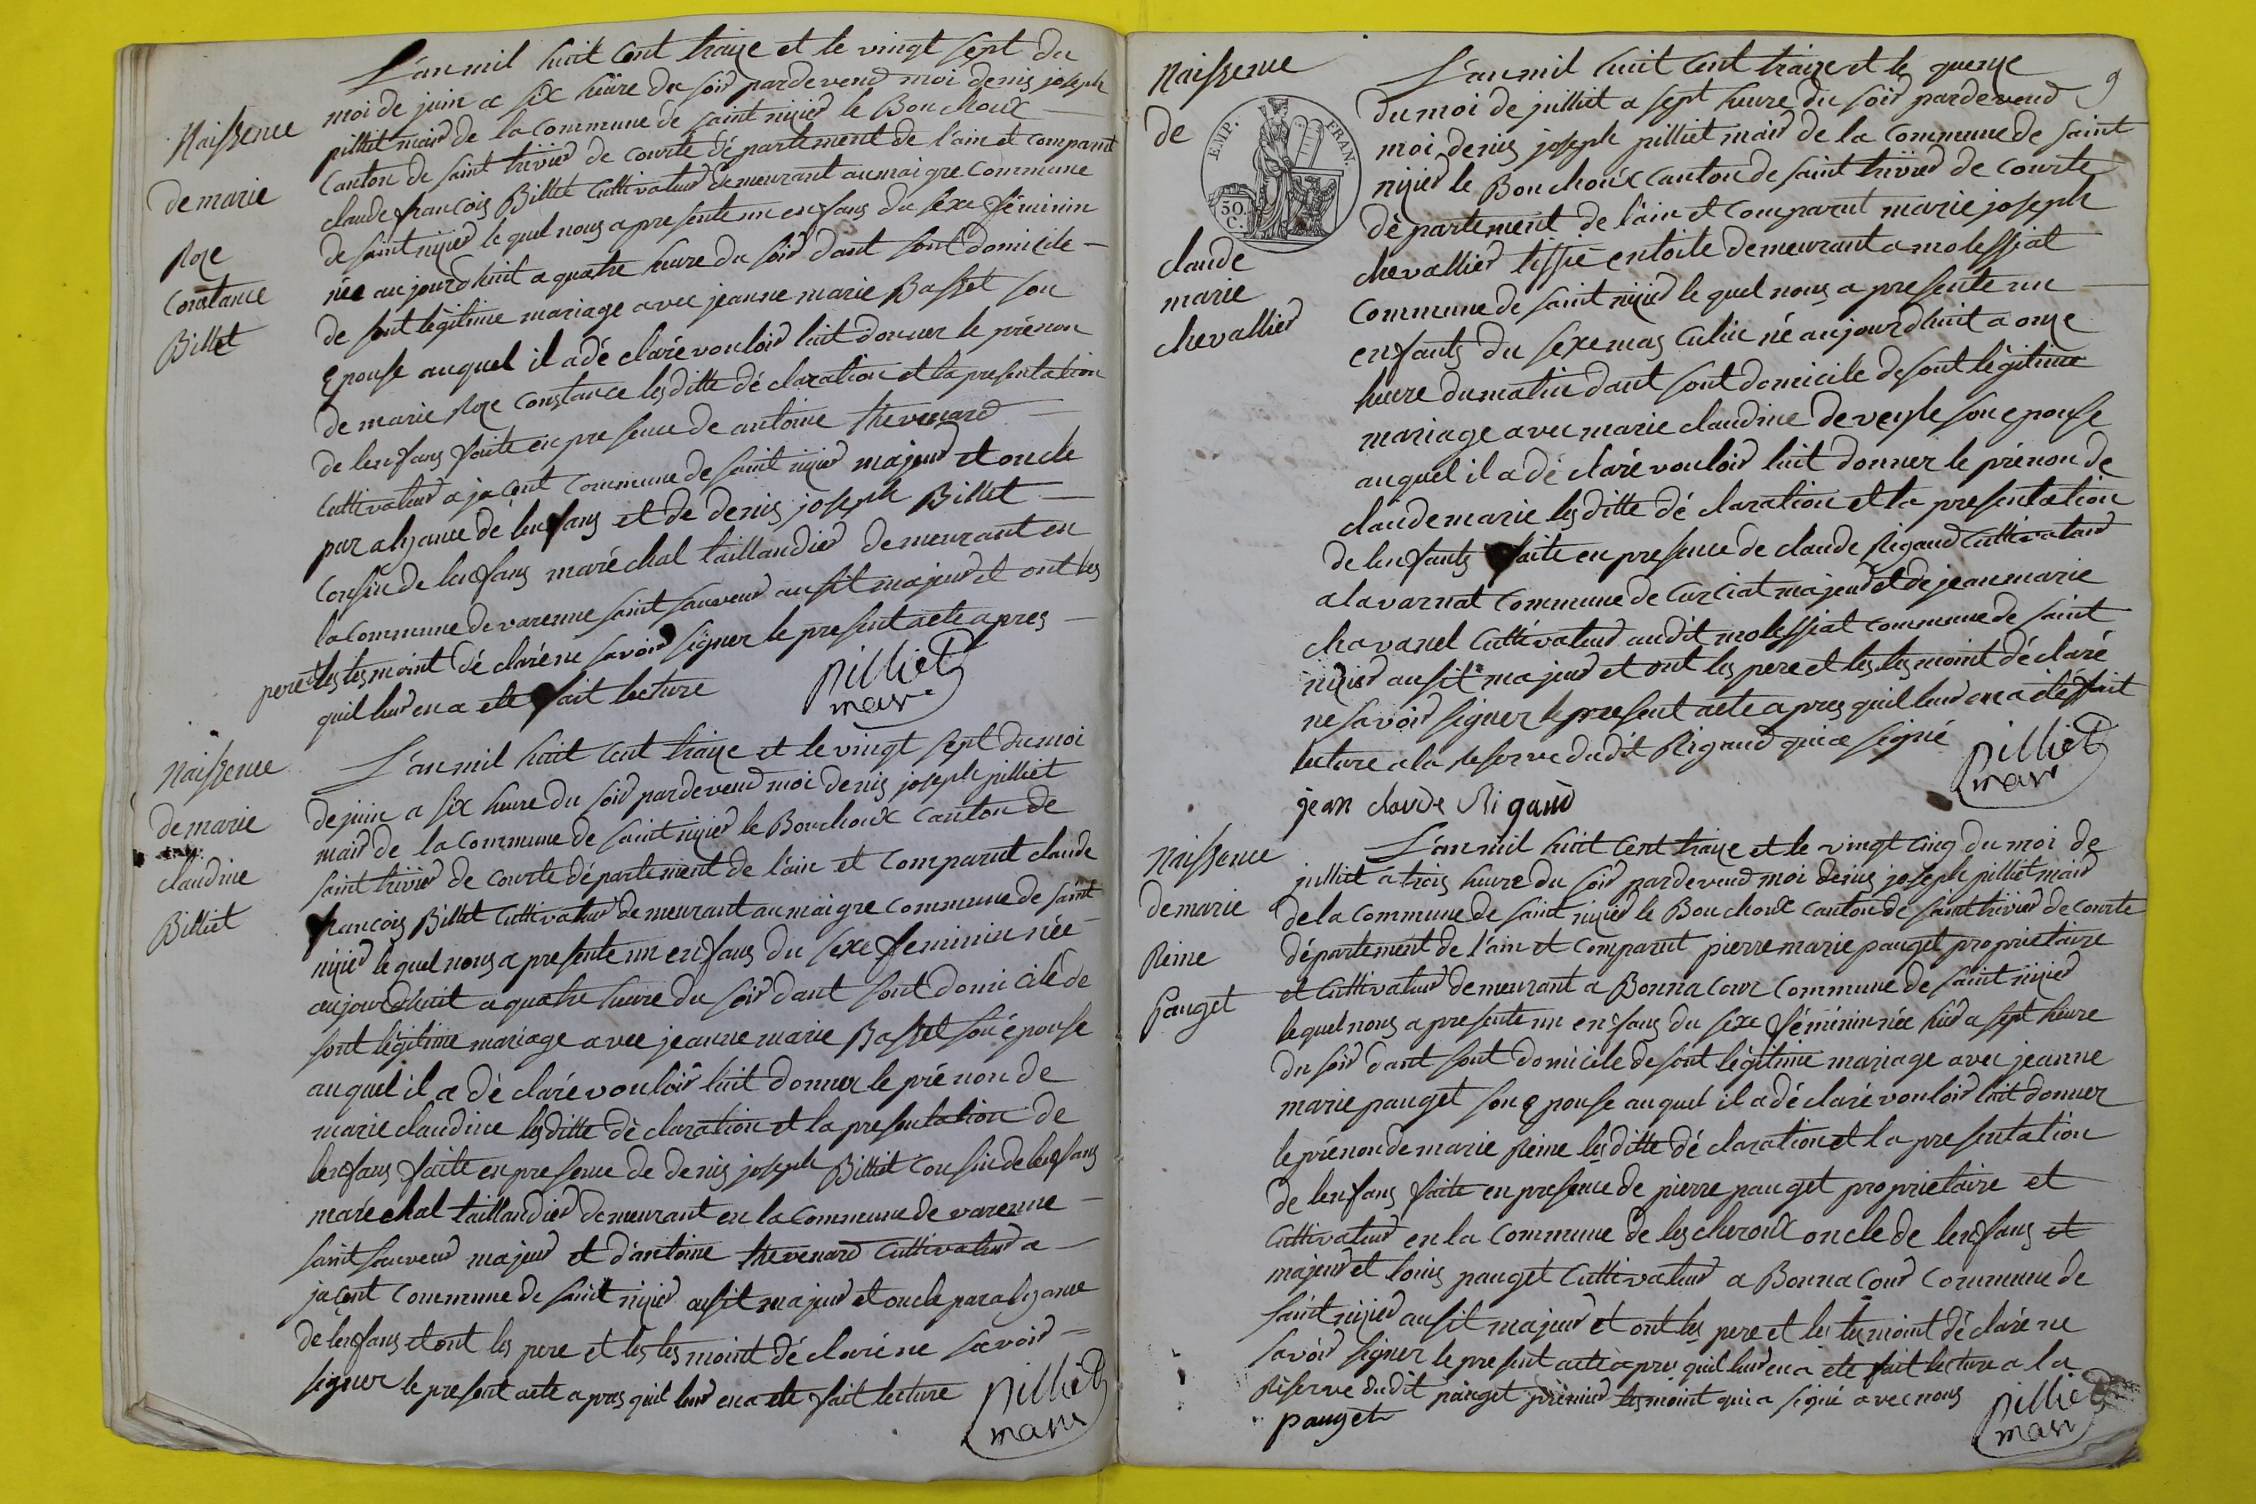 Naissence
de marie
Roze
Constance
Billet
L'an mil huit Cent traize et le vingt sept du
moi de juin a six heure du soir pardevend moi denis joseph
pilliet mair de la Commune de saint nizier le Bouchoux
Canton de saint trivier de courte département de l'ain et comparut
claude françois Billet Cultivateur demeurant au maigre commune
de saint nizier le quel nous a presente un enfans du sexe féminin
née aujourdhuit a quatre heure du soir dant sont domicile
de sont légitime mariage avec jeanne marie Basset son
Epouse auquel il a dé claré vouloir luit donner le prénon
de marie Roze Constance lesditte dé claration et la presentation
de lenfans faite en presence de antoine thevenard
Cultivateur a jacent Commune de saint nizier majeur et oncle
par alyance dé lenfans et de denis joseph Billet
Cousin de lenfans maréchal taillandier demeurant en
la Commune de varenne saint sauveur ausit majeur et ont les
pere et les tesmoint dé claré ne savoir signer le present acte apres
quil leur en a ete fait lecture
pilliet
mair
Naissence
de marie
claudine
Billiet
L'an mil huit cent traize et le vingt sept du moi
de juin a six heure du soir pardevend moi denis joseph pilliet
mair de la commune de saint nizier le Bouchoux Canton de
saint trivier de courte département de l'ain et comparut claude
françois Billet Cultivateur demeurant au maigre commune de saint
nizier le quel nous a presente un enfans du sexe feminin née
aujourdhuit a quatre heure du soir dant sont domicile de
sont légitime mariage avec jeanne marie Basset son épouse
auquel il a dé claré vouloir luit donner le prénon de
marie claudine lesditte dé claration et la presentation de
lenfans faite en presence de denis joseph Billiet cousin de lenfans
maréchal taillandier demeurant en la Commune de varenne
saint sauveur majeur et d'antoine thevenard Cultivateur a
jacent Commune de saint nizier ausit majeur et oncle par alyance
de lenfans et ont les pere et les tesmoint dé claré ne savoir
signer le present acte apres quil leur en a ete fait lecture
pilliet
mair
9
Naissence
de
claude
marie
chevallier
EMP. FRAN.
50.
C.
L'an mil huit Cent traize et le quenze
du moi de juilliet a sept heure du soir pardevend
moi denis joseph pilliet mair de la Commune de saint
nizier le Bouchoux Canton de saint trivier de courte
département de l'ain et Comparut marie joseph
chevallier tissié en toile demeurant a molessiat
Commune de saint nizier le quel nous a presente un
enfants du sexe mas culin né aujourdhuit a onze
heure du matin dant sont domicile de sont légitime
mariage avec marie claudine deveyle son epouse
auquel il a dé claré vouloir luit donner le prénon de
claude marie lesditte dé claration et la presentation
de lenfants faite en presence de claude Rigaud Cultivateur
a lavarnat Commune de Curciat majeur et de jean marie
chavanel Cultivateur audit molessiat commune de saint
nizier ausit majeur et ont les pere et les tesmoint dé claré
ne savoir signer le present acte apres quil leur en a été fait
lecture a la reserve dudit Rigaud qui a signé
pilliet
mair
jean claude Rigaud
Naissence
de marie
Reine
Pauget
L'an mil huit Cent traize et le vingt cinq du moi de
juilliet a trois heure du soir pardevend moi denis joseph pilliet mair
de la Commune de saint nizier le Bouchoux canton de saint trivier de courte
département de l'ain et Comparut pierre marie pauget proprietaire
et Cultivateur demeurant a Bonna cour Commune de saint nizier
le quel nous a presente un enfans du sexe féminin née hier a sept heure
du soir dant sont domicile de sont légitime mariage avec jeanne
marie pauget son Epouse auquel il a dé claré vouloir luit donner
le prénon de marie Reine lesditte dé claration et la presentation
de lenfans faite en presence de pierre pauget proprietaire et
Cultivateur en la commune de lescheroux oncle de lenfans et
majeur et louis pauget Cultivateur a Bonna cour Commune de
saint nizier ausit majeur et ont les pere et les tesmoint dé claré ne
savoir signer le present acte apres quil leur en a ete fait lecture a la
Réserve dudit pauget prémier tesmoint qui a signé avec nous
pauget
pilliet
mair